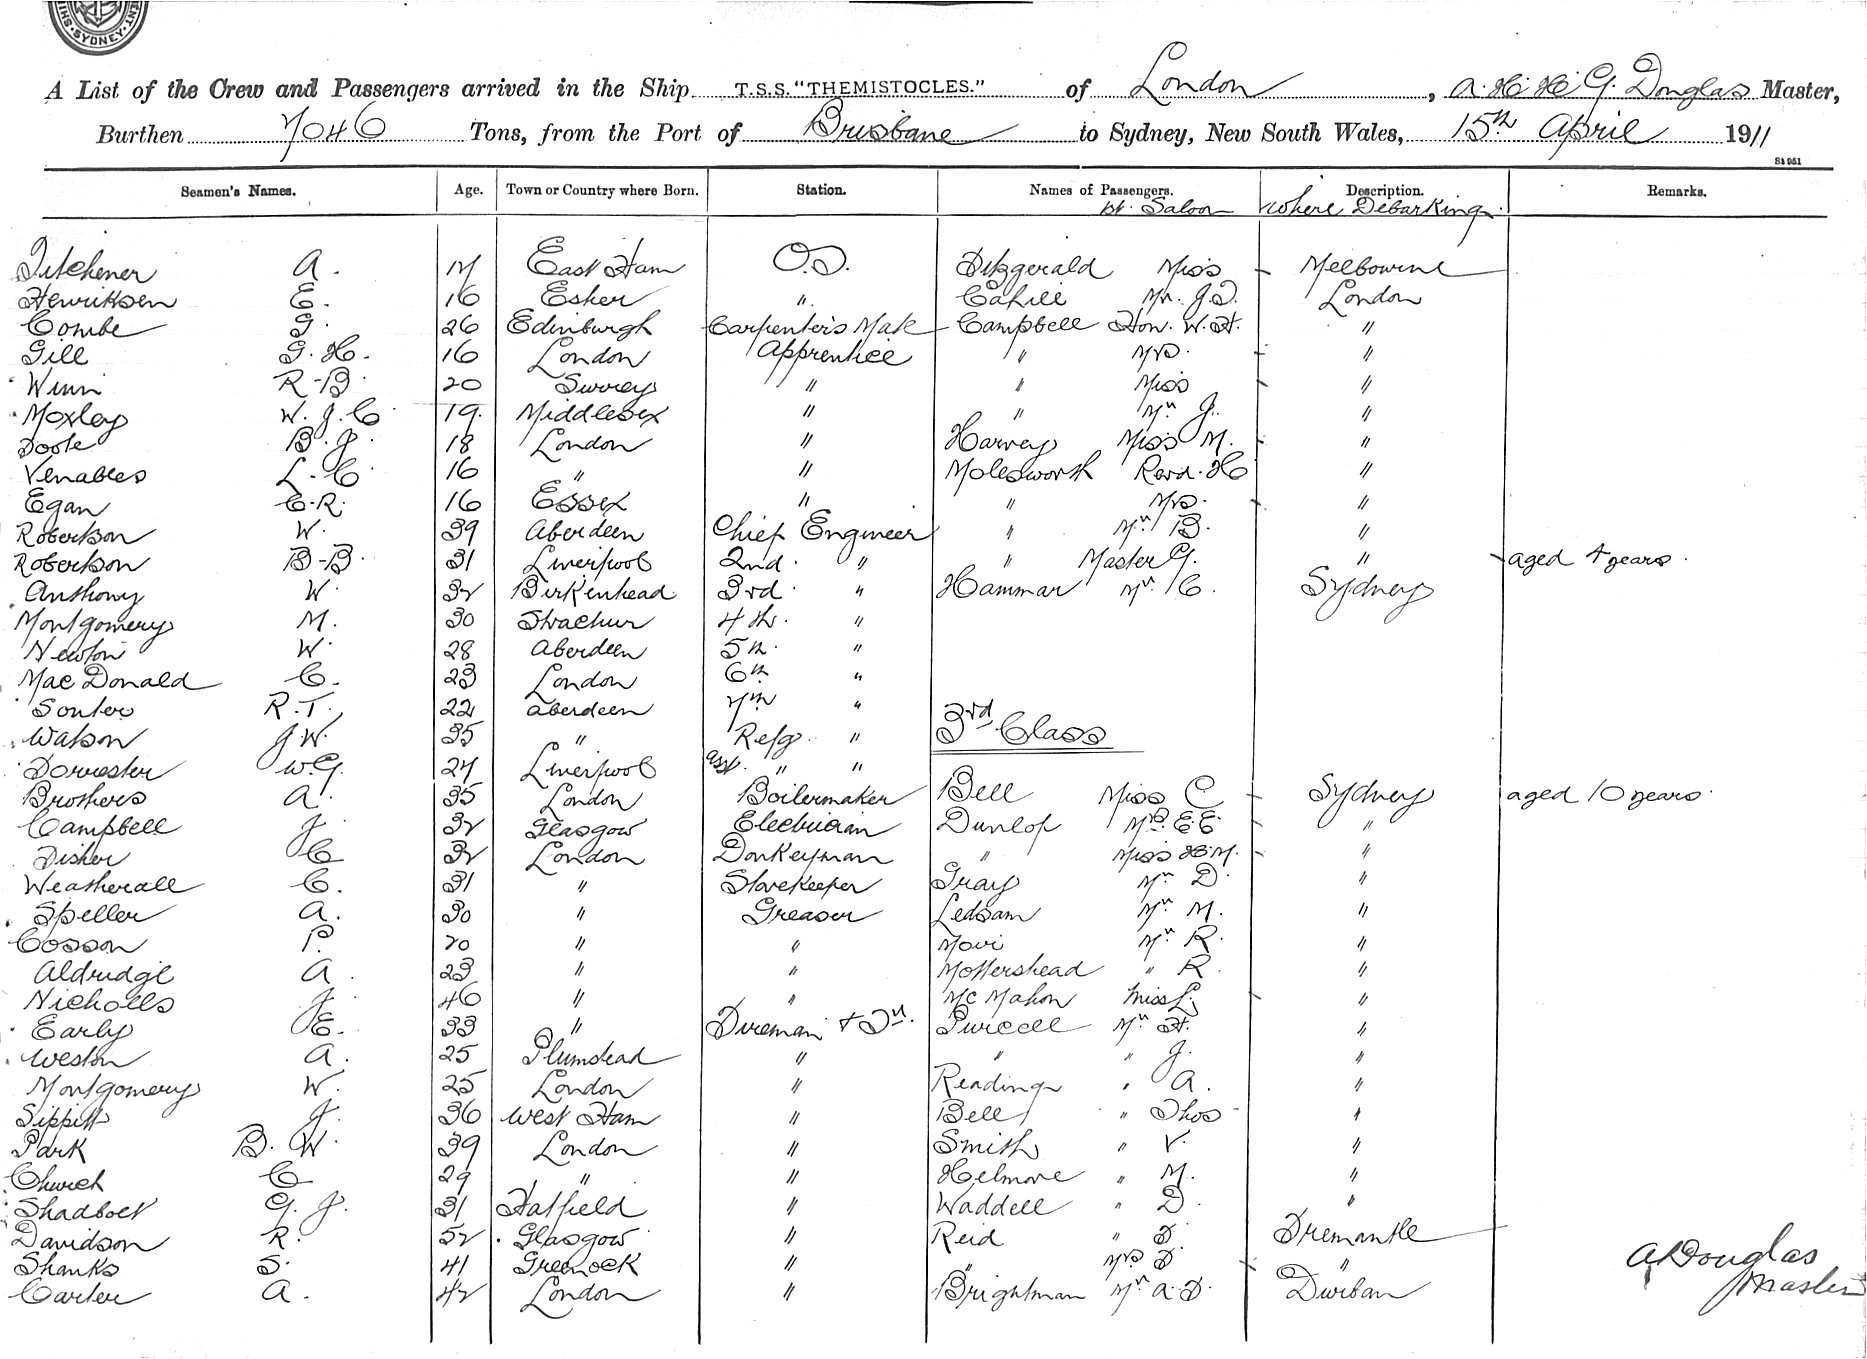 SYDNEY
A List of the Crew and Passengers arrived in the Ship T.S.S. "THEMISTOCLES." of London, A. H. H. G. Douglas Master,
Burthen 7046 Tons, from the Port of Brisbane to Sydney, New South Wales, 15th April 1911
St 951
Seamen's Names. Age. Town or Country where Born. Station. Names of Passengers. Description. Remarks.
1st Saloon where Debarking
Titchener A. 17 East Ham O.S. Fitzgerald Miss Melbourne
Henriksen E. 16 Esher " Cahill Mr. J.S. London
Combe G. 26 Edinburgh Carpenter's Mate Campbell Hon. W.H. "
Gill G.H. 16 London Apprentice " Mrs. "
Winn R.B. 20 Surrey " " Miss "
Moxley W.J.C. 19 Middlesex " " Mr J. "
Poole B.J. 18 London " Harvey Miss M. "
Venables L.C. 16 " " Molesworth Revd. H "
Egan C.R. 16 Essex " " Mrs. "
Robertson W. 39 Aberdeen Chief Engineer " Mr B. "
Robertson B.B. 31 Liverpool 2nd " " Master G. " aged 4 years.
Anthony W. 32 Birkenhead 3rd " Hammar Mr. C. Sydney
Montgomery M. 30 Strachur 4th. "
Newton W. 28 Aberdeen 5th. "
MacDonald C. 23 London 6th "
Souter R.T. 22 Aberdeen 7th "
Watson J.W. 35 " Refg. " 3rd Class
Dorrester W.G. 27 Liverpool asst. " "
Brothers A. 35 London Boilermaker Bell Miss C Sydney aged 10 years.
Campbell J. 32 Glasgow Electrician Dunlop Mrs E.E. "
Fisher C 32 London Donkeyman " Miss H.M. "
Weatherall C. 31 " Storekeeper Gray Mr D. "
Speller A. 30 " Greaser Ledsam Mr M. "
Cosson P. 20 " " Movi Mr R. "
Aldridge A. 23 " " Mottershead " R. "
Nicholls J. 46 " " McMahon Miss L. "
Early E. 33 " Fireman & Tr. Purcell Mr H. "
Weston A. 25 Plumstead " " " J. "
Montgomery W. 25 London " Reading " A. "
Sippitt J. 36 West Ham " Bell " Thos "
Park B. W. 39 London " Smith " V. "
Church C 29 " " Helmore " M. "
Shadbolt G. J. 31 Hatfield " Waddell " D. "
Davidson R. 52 Glasgow " Reid " D Fremantle
Shanks S. 41 Greenock " " Mrs D "
Carter A. 42 London " Brightman Mr A.D. Durban
A Douglas
Master